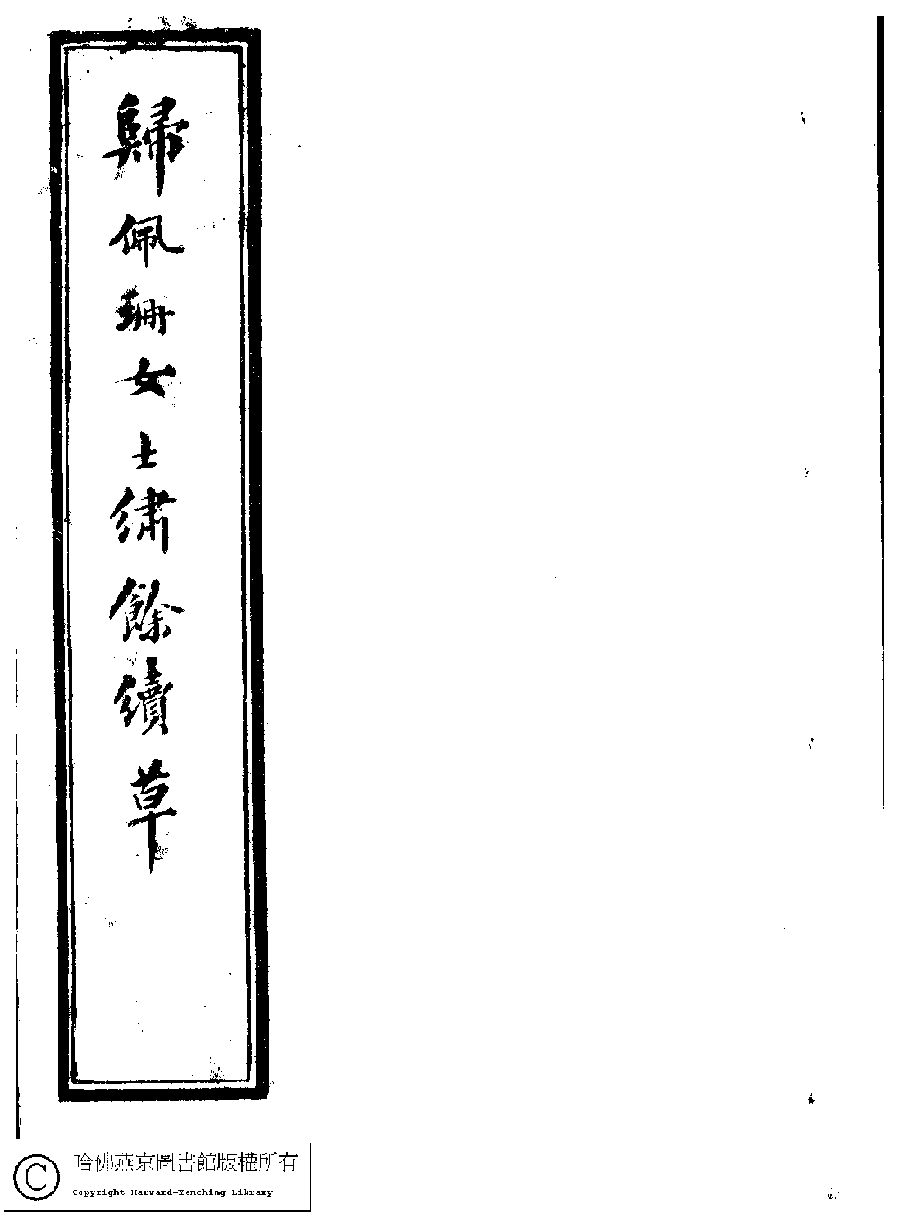 歸佩珊女士繡餘續草
哈佛燕京圖書館版權所有
Copyright Harvard-Yenching Library